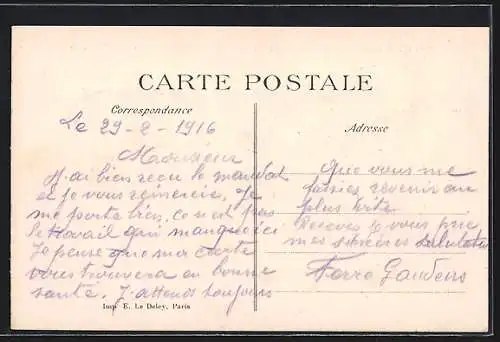 CARTE POSTALE
Correspondance
Adresse
Le 29-2-1916
Monsieur
J'ai bien reçu le mandat
et je vous remercie, je
me porte bien, ce n'est pas
le travail qui manque ici
Je pense que ma carte
vous trouvera en bonne
santé. J'attends toujours
que vous me
fassiez revenir au
plus vite.
Recevez je vous prie
mes sincères salutations
Ferro
Imp. E. Le Deley, Paris